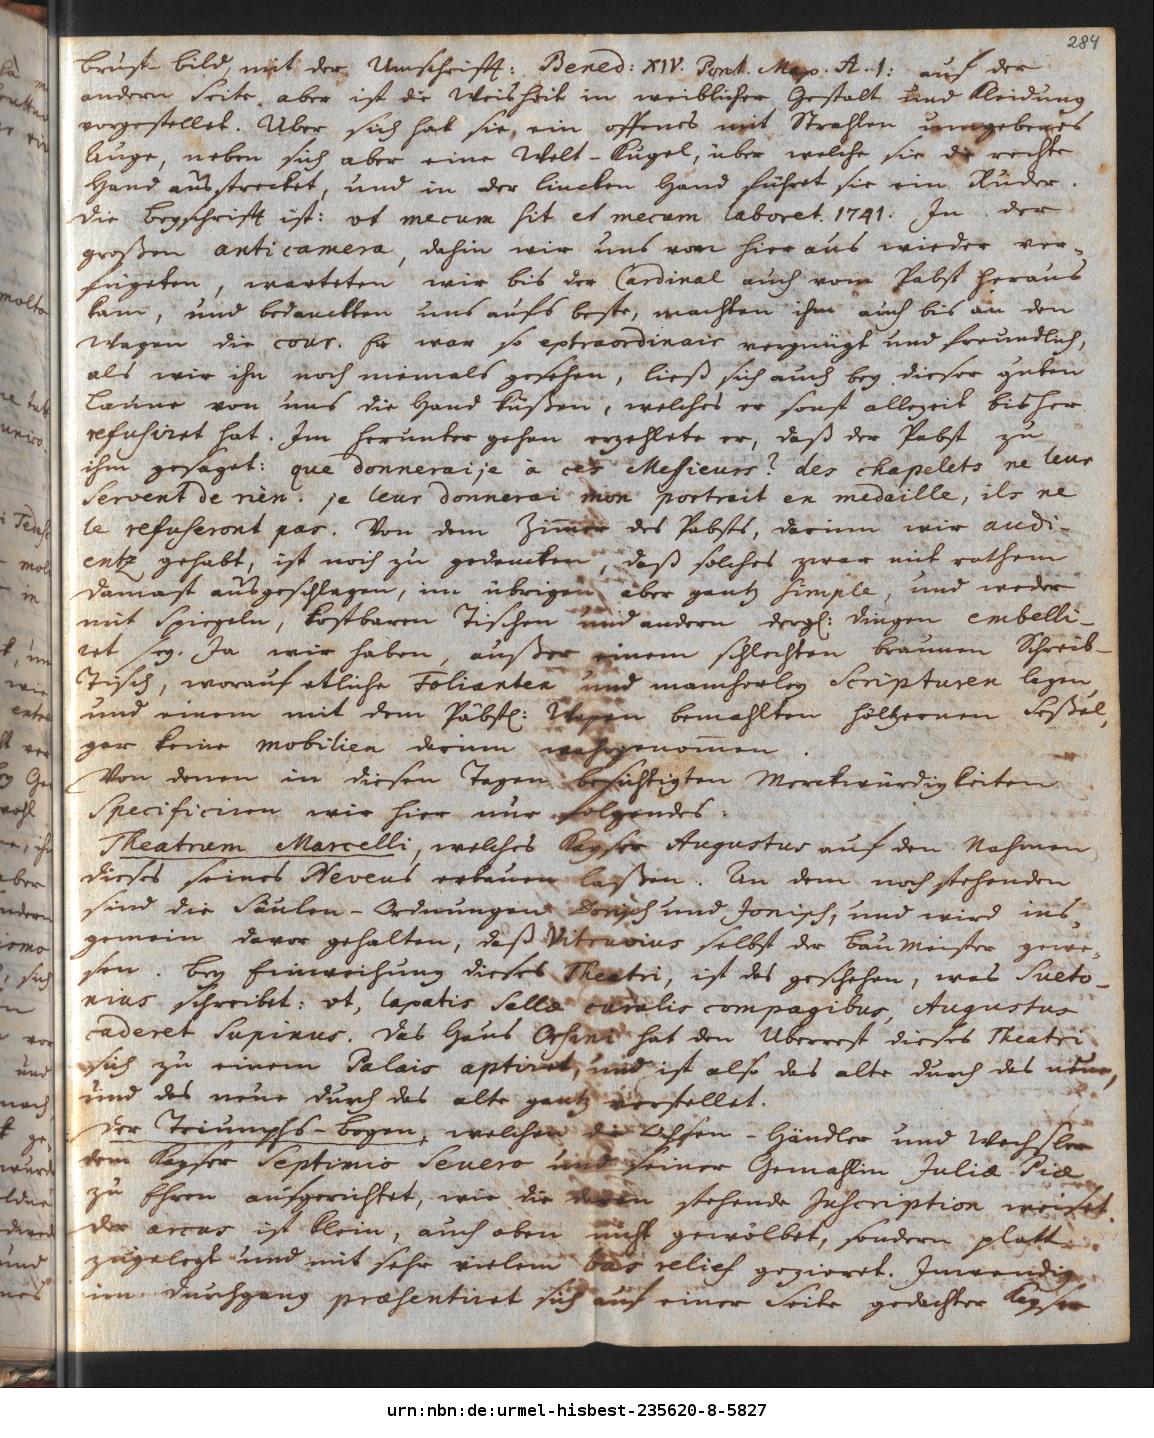 284
brust-bild, mit der Umschrifft: Bened: XIV. Pont. Max. A. 1: auf der
andern Seite aber ist die Weisheit in weiblicher Gestalt und Kleidung
vorgestellet. Über sich hat sie, ein offenes mit Strahlen umgebenes
Auge, neben sich aber eine Welt-Kugel, über welche sie die rechte
Hand ausstrecket, und in der lincken Hand führet sie ein Ruder.
die beyschrifft ist: ut mecum sit et mecum laboret. 1741. In der
großen anticamera, dahin wir uns von hier aus wieder ver-
fügeten, warteten wir bis der Cardinal auch vom Pabst heraus
kam, und bedanckten uns aufs beste, machten ihm auch bis an den
Wagen die cour. Er war so extraordinair vergnügt und freundlich,
als wir ihn noch niemals gesehen, ließ sich auch bey dieser guten
Laune von uns die Hand küßen, welches er sonst allezeit bisher
refusiret hat. Im herunter gehen erzehlete er, daß der Pabst zu
ihm gesaget: que donneraije à ces Messieurs? des chapelets ne leur
servent de rien. je leur donnerai mon portrait en medaille, ils ne
le refuseront pas. Von dem Zimmer des Pabsts, darinn wir audi-
entz gehabt, ist noch zu gedencken, daß solches zwar mit rothem
damast ausgeschlagen, im übrigen aber gantz simple, und weder
mit Spiegeln, kostbaren Tischen und andern dergl: dingen embelli-
ret sey. Ja wir haben, außer einem schlechten braunen Schreib-
Tisch, worauf etliche Folianten und mancherley Scripturen lagen,
und einem mit dem Päbstl: Wapen bemahlten höltzernen Seßel,
gar keine mobilien darinn wahrgenommen.
Von denen in diesen Tagen besichtigten Merckwürdigkeiten
specificiren wir hier nur folgendes:
Theatrum Marcelli, welches Kayser Augustus auf den Nahmen
dieses seines Neveus erbauen laßen. An dem noch stehenden
sind die Säulen-Ordnungen Dorisch und Jonisch, und wird ins
gemein davor gehalten, daß Vitruvius selbst der bau Meister gewe-
sen. bey Einweihung dieses Theatri, ist das geschehen, was Sueto-
nius schreibet: ut, laxatis sellæ curulis compagibus, Augustus
caderet supinus. das Haus Orsini hat den Überrest dieses Theatri
sich zu einem Palais aptiret, und ist also das alte durch das neue,
und das neue durch das alte gantz verstellet.
der Triumphs-bogen, welchen die Ochsen-Händler und Wechsler
dem Kayser Septimio Severo und seiner Gemahlin Juliæ Piæ
zu Ehren aufgerichtet, wie die daran stehende Inscription weiset.
der arcus ist klein, auch oben nicht gewölbet, sondern platt
zugelegt und mit sehr vielem bas relief gezieret. Inwendig
im durchgang præsentiret sich auf einer Seite gedachter Kayser
urn:nbn:de:urmel-hisbest-235620-8-5827